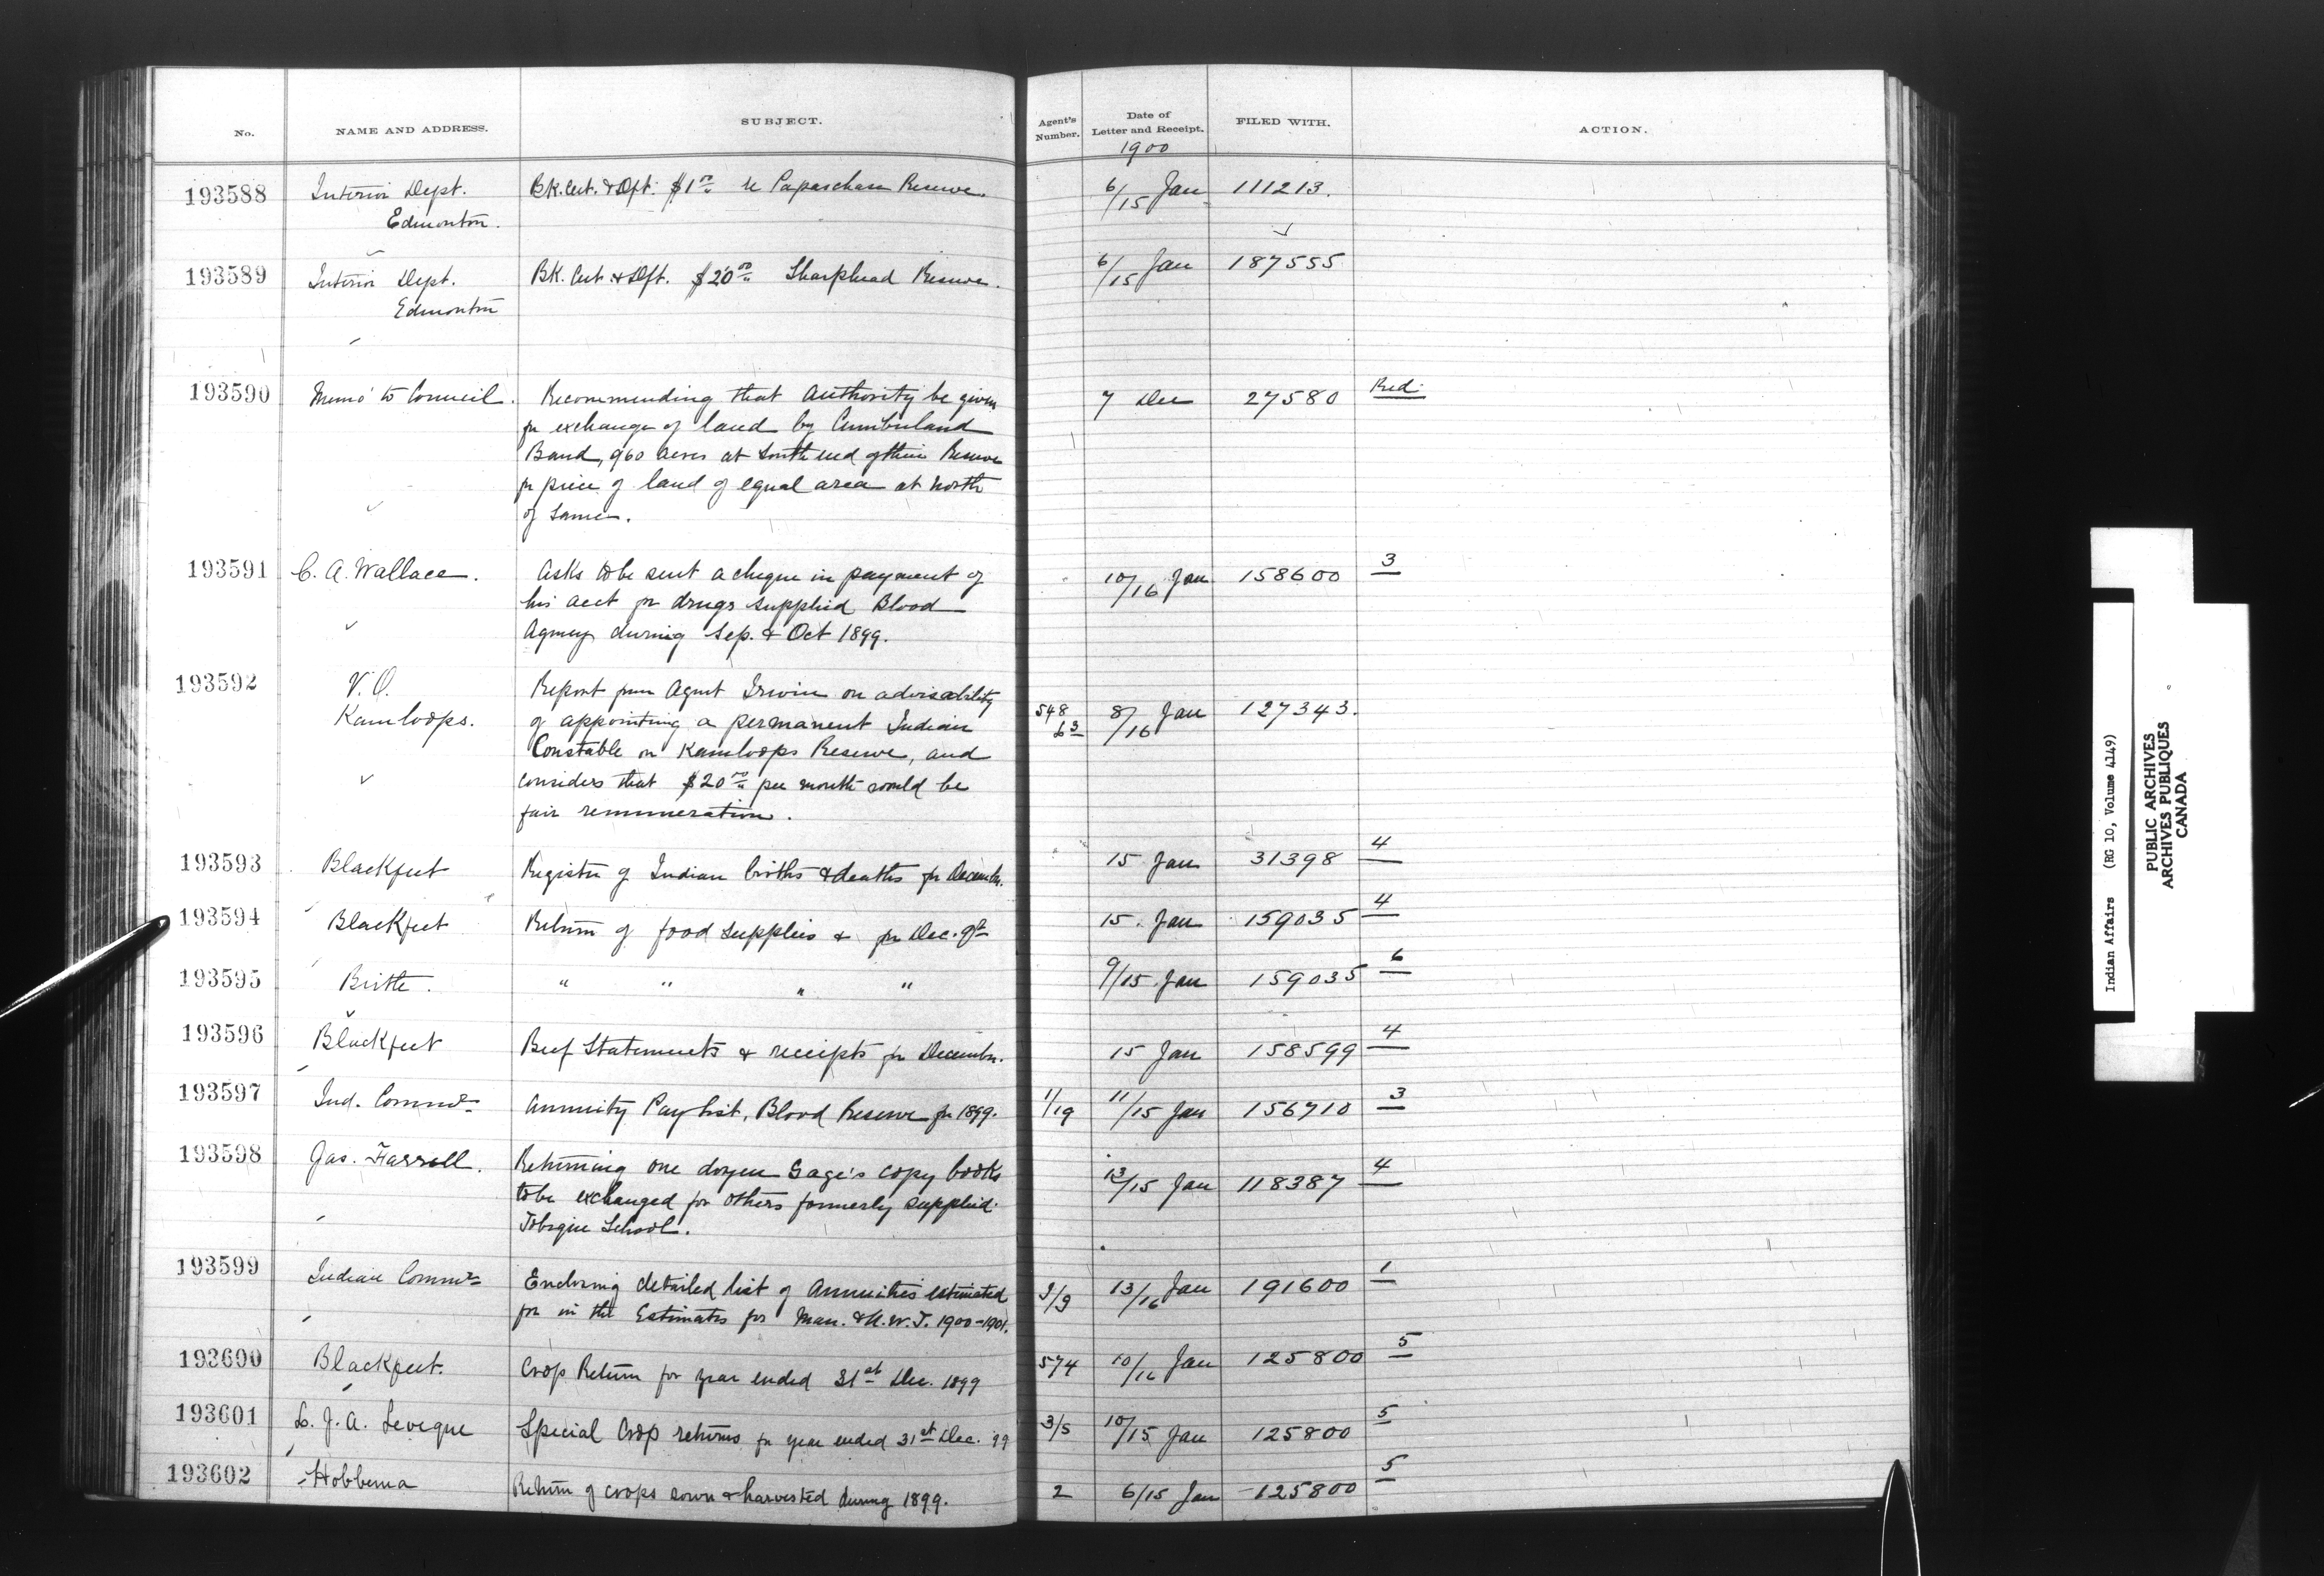 No. NAME AND ADDRESS. SUBJECT. Agent's Number. Date of Letter and Receipt. FILED WITH. ACTION.
1900
193588 Interior Dept. Bk. Cert. & Dft. $1 00 re Papaschase Reserve. 6/15 Jan 111213.
Edmonton.
193589 Interior Dept. Bk. Cert. & Dft. $20 00 Sharphead Reserve. 6/15 Jan 187555
Edmonton
193590 Memo to Council. Recommending that authority be given 7 Dec 27580 Red.
for exchange of land by Cumberland
Band, 960 acres at South end of their Reserve
for piece of land of equal area at North
of same.
193591 C. A. Wallace. Asks to be sent a cheque in payment of 10/16 Jan 158600 3
his acct for drugs supplied Blood
Agency during Sep. & Oct 1899.
193592 V. O. Report from Agent Irwin on advisability 548 8/16 Jan 127343.
Kamloops. of appointing a permanent Indian 63
Constable on Kamloops Reserve, and
considers that $20 00 per month would be
fair remuneration.
193593 Blackfeet Register of Indian births & deaths for December. 15 Jan 31398 4
193594 Blackfeet Return of food supplies & for Dec. 15. Jan 159035 4
193595 Birtle. " " " " 9/15 Jan 159035 6
193596 Blackfeet Beef Statements & receipts for December. 15 Jan 158599 4
193597 Ind. Commr Annuity Pay list, Blood Reserve for 1899. 1/19 11/15 Jan 156710 3
193598 Jas. Farrell. Returning one dozen Gage's copy books 13/15 Jan 118387 4
to be exchanged for others formerly supplied
Tobique School.
193599 Indian Commr Enclosing detailed list of Annuities estimated 9/9 13/16 Jan 191600 1
for in the Estimates for Man. & N.W.T. 1900-1901.
193600 Blackfeet. Crop Return for year ended 31st Dec. 1899 574 10/16 Jan 125800 5
193601 L. J. A. Leveque Special Crop returns for year ended 31st Dec. 99 3/5 10/15 Jan 125800 5
193602 Hobbema Return of crops sown & harvested during 1899. 2 6/15 Jan 125800 5
Indian Affairs (RG 10, Volume 4149)
PUBLIC ARCHIVES
ARCHIVES PUBLIQUES
CANADA